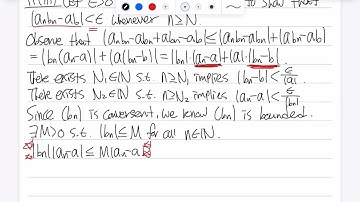 Let ε>0. to show that
|anbn-ab|<ε whenever n≥N
Observe that |anbn-abn+abn-ab|≤|anbn-abn|+|abn-ab|
=|bn(an-a)|+|a(bn-b)|=|bn|·|an-a|+|a|·|bn-b|.
There exists N₁∈ℕ s.t. n≥N₁ implies |bn-b|<ε/|a|
There exists N₂∈ℕ s.t. n≥N₂ implies |an-a|<ε/|bn|
Since (bn) is convergent, we know (bn) is bounded.
∃M>0 s.t. |bn|≤M for all n∈ℕ.
|bn||an-a|≤M|an-a|